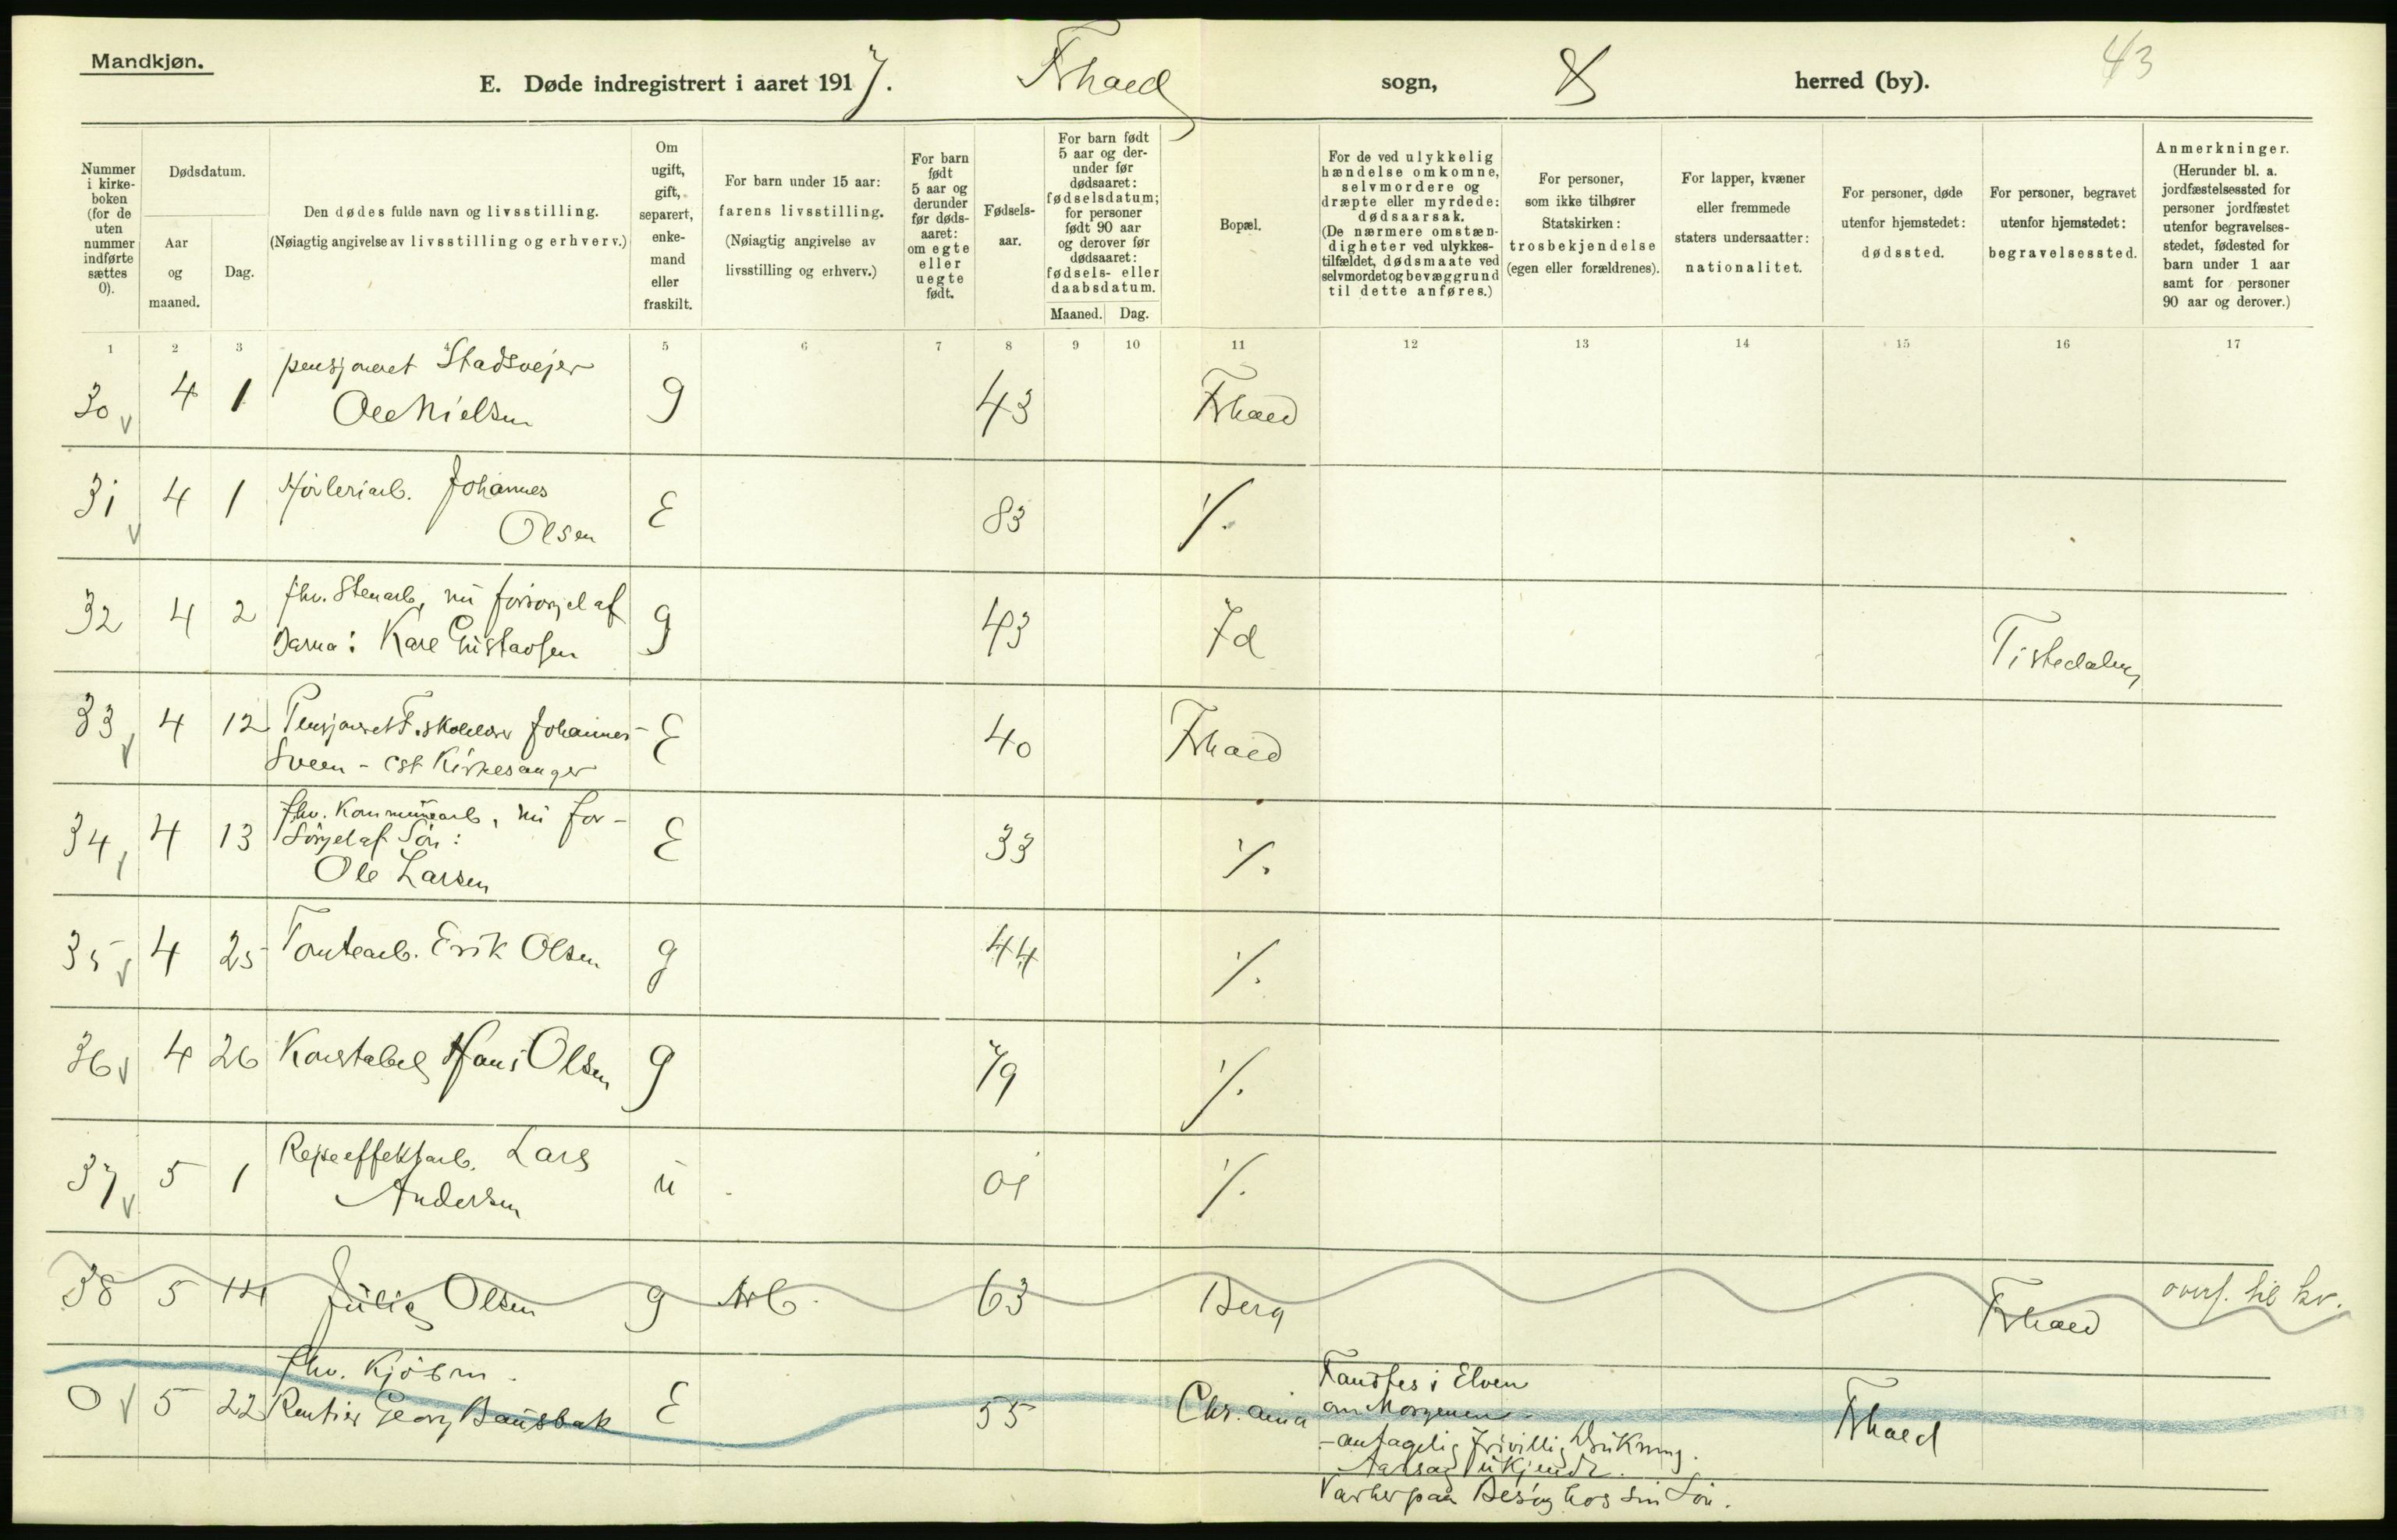 Mandkjøn.
E. Døde indregistrert i aaret 1917. Frhald sogn, herred (by). 43
Nummer i kirkeboken (for de uten nummer indførte sættes 0).
Dødsdatum.
Aar og maaned.
Dag.
Den dødes fulde navn og livsstilling.
(Nøiagtig angivelse av livsstilling og erhverv.)
Om ugift, gift, separert, enkemand eller fraskilt.
For barn under 15 aar: farens livsstilling.
(Nøiagtig angivelse av livsstilling og erhverv.)
For barn født 5 aar og derunder før dødsaaret: om egte eller uegte født.
Fødselsaar.
For barn født 5 aar og derunder før dødsaaret: fødselsdatum; for personer født 90 aar og derover før dødsaaret: fødsels- eller daabsdatum.
Maaned. Dag.
Bopæl.
For de ved ulykkelig hændelse omkomne, selvmordere og dræpte eller myrdede: dødsaarsak.
(De nærmere omstændigheter ved ulykkestilfældet, dødsmaate ved selvmordet og bevæggrund til dette anføres.)
For personer, som ikke tilhører Statskirken: trosbekjendelse (egen eller forældrenes).
For lapper, kvæner eller fremmede staters undersaatter: nationalitet.
For personer, døde utenfor hjemstedet: dødssted.
For personer, begravet utenfor hjemstedet: begravelsessted.
Anmerkninger.
(Herunder bl. a. jordfæstelsessted for personer jordfæstet utenfor begravelsesstedet, fødested for barn under 1 aar samt for personer 90 aar og derover.)
1 2 3 4 5 6 7 8 9 10 11 12 13 14 15 16 17
pensjoneret Stadsvejer
30 v 4 1 Ole Nielsen g 43 Frhald
31 v 4 1 Høvleriarb. Johannes
Olsen E 83 ⁒
32 4 2 fhv. Stenarb, nu forsørget af
Barna: Kare Gustavsen g 43 Id Tistedalen
33 v 4 12 Pensjoneret F.skolelærer Johannes
Sveen - cst Kirkesanger E 40 Frhald
34 v 4 13 fhv. Kommunearb, nu for-
sørget af Søn:
Ole Larsen E 33 ⁒
35 v 4 25 Tomtearb. Erik Olsen g 44 ⁒
36 v 4 26 Konstabel Hans Olsen g 79 ⁒
37 v 5 1 Rejseeffektarb. Lars
Andersen u 01 ⁒
38 5 14 Julie Olsen g Arb. 63 Berg Frhald overf. til kv.
fhv. Kjøbm.
0 v 5 22 Rentier Georg Bausbak E 55 Chr.ania Frhald
Fandtes i Elven
om Morgenen
- antagelig frivillig Drukning.
Aarsag ukjendt.
Var her paa Besøg hos sin Søn.